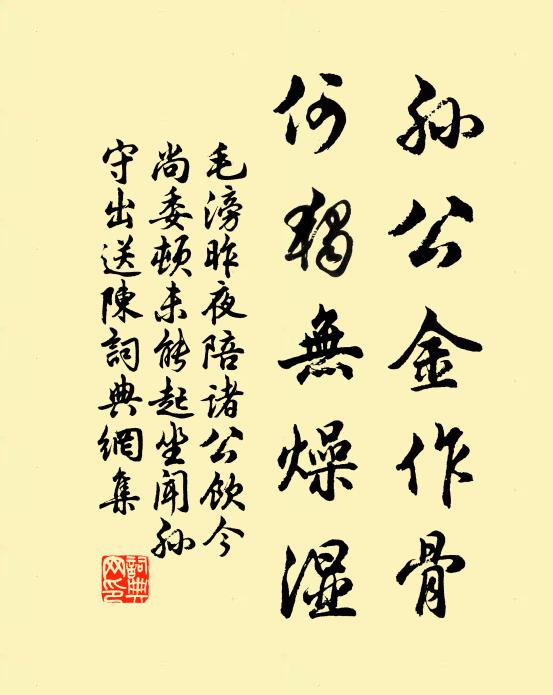 孙公金作骨
何独無燥湿
毛滂昨夜陪诸公饮今
尚委顿未能起坐闻孙
守出送陳詞典網集
詞典
网印